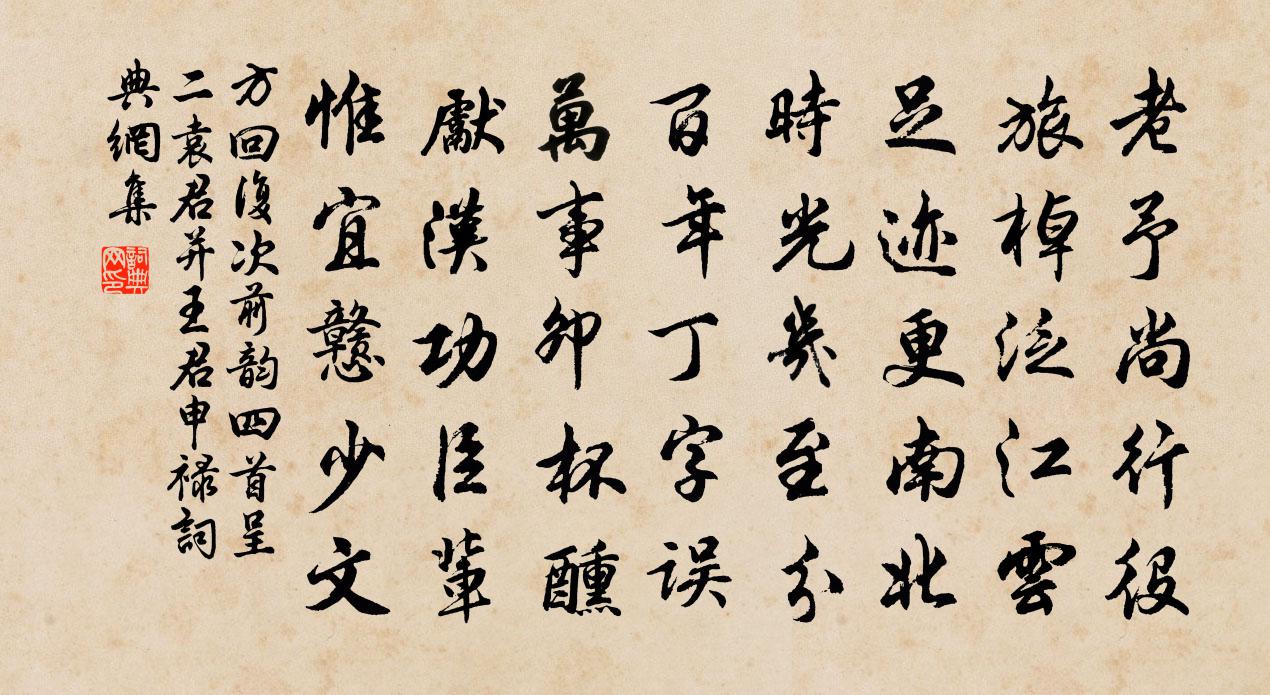 老予尚行役
旅棹泛江雲
足迹更南北
時光幾至分
百年丁字誤
萬事卯杯醺
獻漢功臣輩
惟宜戇少文
方回復次前韵四首呈
二袁君并王君申禄詞
典網集
詞典網印